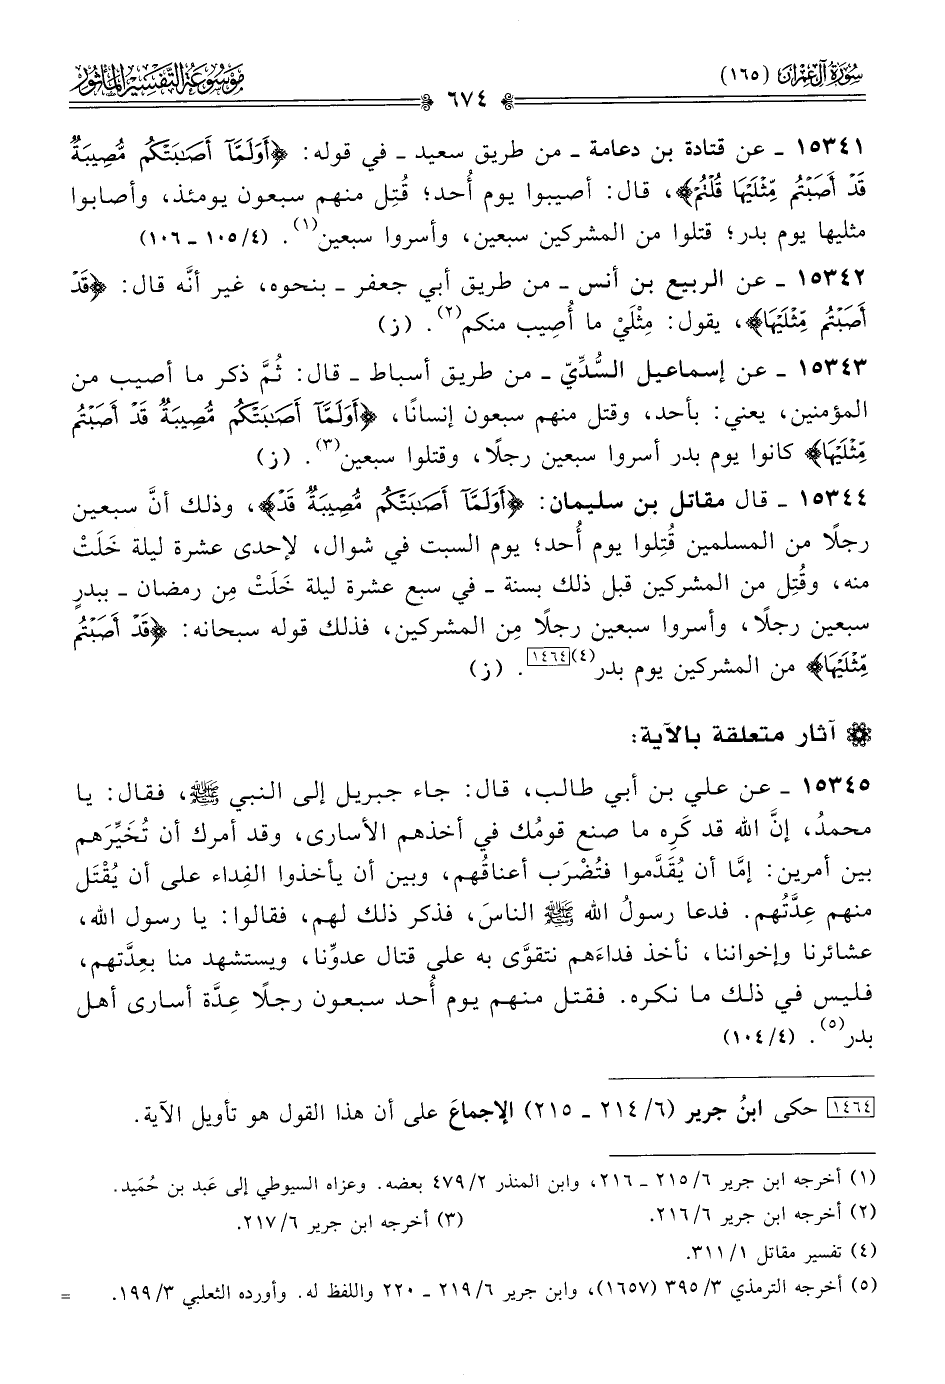 سُورَةُ آلِ عِمْرَان (١٦٥)
٦٧٤
مَوْسُوعَةُ التَّفْسِيرِ المَأْثُورِ
١٥٣٤١ ـ عن قتادة بن دعامة ـ من طريق سعيد ـ في قوله: ﴿أَوَلَمَّآ أَصَٰبَتۡكُم مُّصِيبَةٌ
قَدۡ أَصَبۡتُم مِّثۡلَيۡهَا قُلۡتُمۡ﴾، قال: أصيبوا يوم أُحد؛ قُتِل منهم سبعون يومئذ، وأصابوا
مثليها يوم بدر؛ قتلوا من المشركين سبعين، وأسروا سبعين(١). (٤/ ١٠٥ ـ ١٠٦)
١٥٣٤٢ ـ عن الربيع بن أنس ـ من طريق أبي جعفر ـ بنحوه، غير أنَّه قال: ﴿قَدۡ
أَصَبۡتُم مِّثۡلَيۡهَا﴾، يقول: مِثْلَيْ ما أُصِيب منكم(٢). (ز)
١٥٣٤٣ ـ عن إسماعيل السُّدِّيّ ـ من طريق أسباط ـ قال: ثُمَّ ذكر ما أصيب من
المؤمنين، يعني: بأحد، وقتل منهم سبعون إنسانًا، ﴿أَوَلَمَّآ أَصَٰبَتۡكُم مُّصِيبَةٌ قَدۡ أَصَبۡتُم
مِّثۡلَيۡهَا﴾ كانوا يوم بدر أسروا سبعين رجلًا، وقتلوا سبعين(٣). (ز)
١٥٣٤٤ ـ قال مقاتل بن سليمان: ﴿أَوَلَمَّآ أَصَٰبَتۡكُم مُّصِيبَةٌ قَدۡ﴾، وذلك أنَّ سبعين
رجلًا من المسلمين قُتِلوا يوم أُحد؛ يوم السبت في شوال، لإحدى عشرة ليلة خَلَتْ
منه، وقُتِل من المشركين قبل ذلك بسنة ـ في سبع عشرة ليلة خَلَتْ مِن رمضان ـ ببدرٍ
سبعين رجلًا، وأسروا سبعين رجلًا مِن المشركين، فذلك قوله سبحانه: ﴿قَدۡ أَصَبۡتُم
مِّثۡلَيۡهَا﴾ من المشركين يوم بدر(٤)[١٤٦٤]. (ز)
آثار متعلقة بالآية:
١٥٣٤٥ ـ عن علي بن أبي طالب، قال: جاء جبريل إلى النبي ﷺ، فقال: يا
محمدُ، إنَّ الله قد كَرِه ما صنع قومُك في أخذهم الأسارى، وقد أمرك أن تُخَيِّرَهم
بين أمرين: إمَّا أن يُقَدَّموا فتُضْرَب أعناقُهم، وبين أن يأخذوا الفِداء على أن يُقْتَل
منهم عِدَّتُهم. فدعا رسولُ الله ﷺ الناسَ، فذكر ذلك لهم، فقالوا: يا رسول الله،
عشائرنا وإخواننا، نأخذ فداءَهم نتقوَّى به على قتال عدوِّنا، ويستشهد منا بعِدَّتهم،
فليس في ذلك ما نكره. فقتل منهم يوم أُحد سبعون رجلًا عِدَّة أسارى أهل
بدر(٥). (٤/ ١٠٤)
[١٤٦٤] حكى ابنُ جرير (٦/ ٢١٤ ـ ٢١٥) الإجماعَ على أن هذا القول هو تأويل الآية.
(١) أخرجه ابن جرير ٦/ ٢١٥ ـ ٢١٦، وابن المنذر ٢/ ٤٧٩ بعضه. وعزاه السيوطي إلى عَبد بن حُمَيد.
(٢) أخرجه ابن جرير ٦/ ٢١٦. (٣) أخرجه ابن جرير ٦/ ٢١٧.
(٤) تفسير مقاتل ١/ ٣١١.
(٥) أخرجه الترمذي ٣/ ٣٩٥ (١٦٥٧)، وابن جرير ٦/ ٢١٩ ـ ٢٢٠ واللفظ له. وأورده الثعلبي ٣/ ١٩٩. =